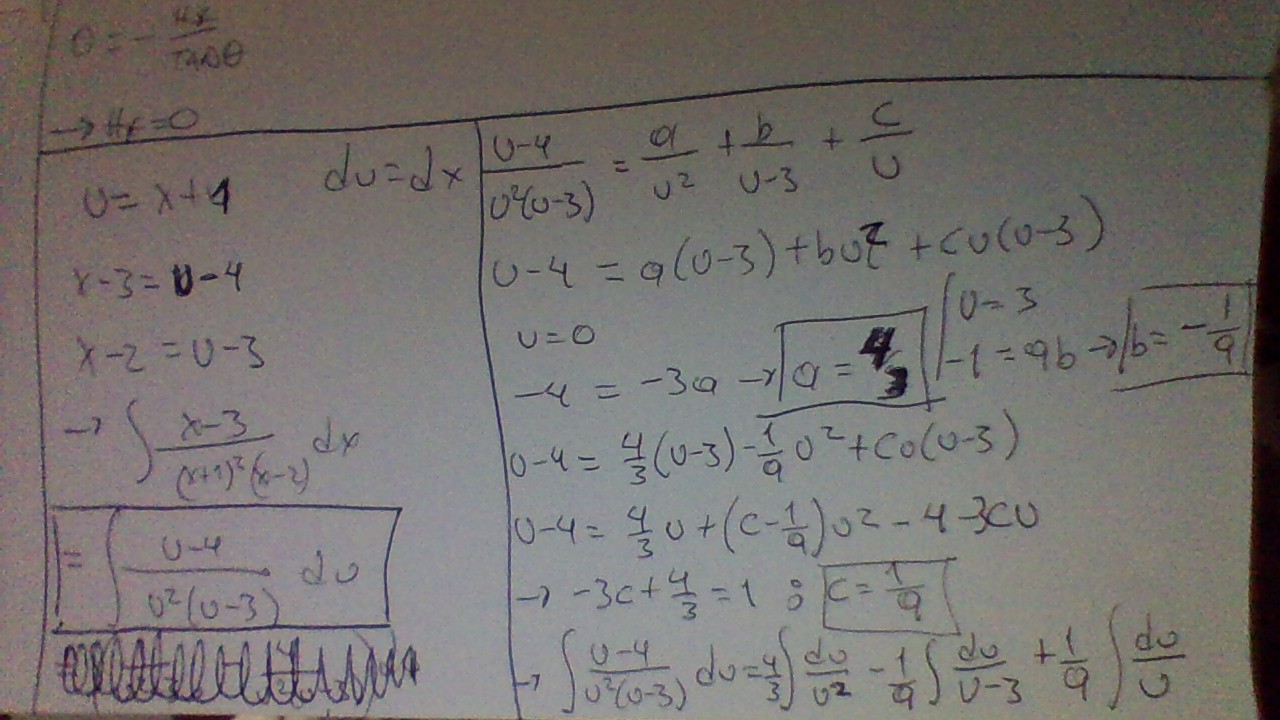 θ = - Hx/TANθ
→ Hx = 0
u = x+1 du = dx
x-3 = u-4
x-2 = u-3
→ ∫ (x-3)/((x+1)²(x-2)) dx
= ∫ (u-4)/(u²(u-3)) du
(u-4)/(u²(u-3)) = a/u² + b/(u-3) + c/u
u-4 = a(u-3) + bu² + cu(u-3)
u=0
-4 = -3a → a = 4/3
u=3
-1 = 9b → b = -1/9
u-4 = 4/3(u-3) - 1/9 u² + cu(u-3)
u-4 = 4/3 u + (c - 1/9)u² - 4 - 3cu
→ -3c + 4/3 = 1 ; c = 1/9
→ ∫ (u-4)/(u²(u-3)) du = 4/3 ∫ du/u² - 1/9 ∫ du/(u-3) + 1/9 ∫ du/u